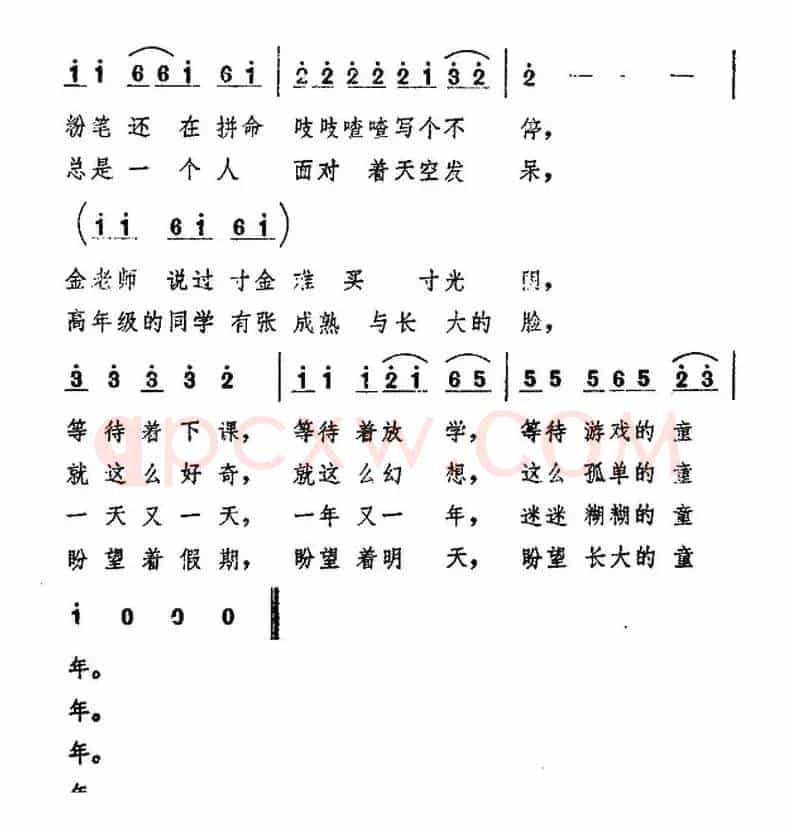 i i 6 6 i 6 i | 2 2 2 2 2 i 3 2 | 2 — — — |
粉笔还在拼命 吱吱喳喳写个不 停，
总是一个人 面对 着天空发 呆，
(i i 6 i 6 i)
金老师 说过 寸金难 买 寸光 阴，
高年级的同学有张成熟 与长 大的 脸，
3 3 3 3 2 | i i i 2 i 6 5 | 5 5 5 6 5 2 3 |
等待着下课， 等待着放 学， 等待 游戏的 童
就这么好奇， 就这么幻 想， 这么 孤单的 童
一天又一天， 一年又一 年， 迷迷 糊糊的 童
盼望着假期， 盼望着明 天， 盼望 长大的 童
i 0 0 0
年。
年。
年。
qpcxw.COM